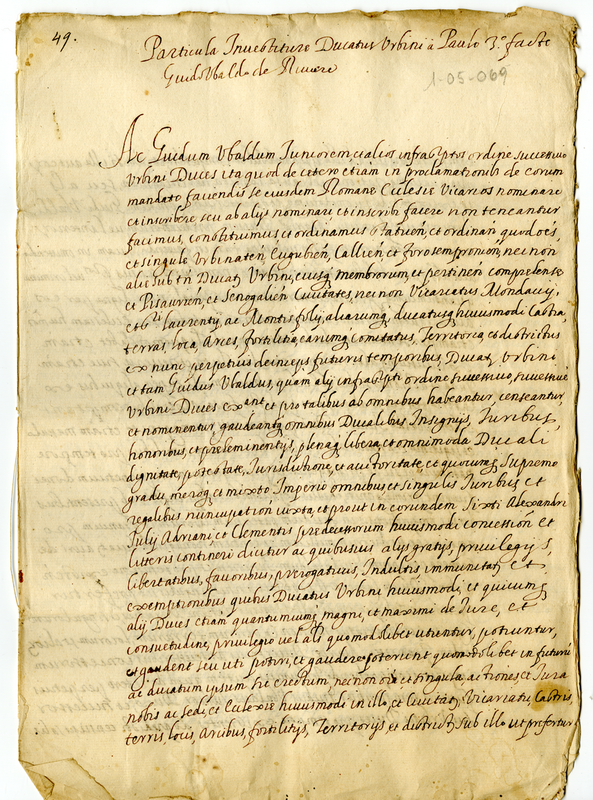 49.
Particula Inuestiture Ducatus Urbini à Paulo 3.º facte
Guid'Vbaldo de Ruuere
1-05-069
Ac Guidum Vbaldum Iuniorem, et alios infrascriptos ordine successiuo
Vrbini Duces ita quod de cetero etiam in proclamationib de eorum
mandato faciendis se eiusdem Romane Ecclesie Vicarios nominare
et inscribere seu ab alijs nominari, et inscribi facere non teneantur
facimus, constituimus et ordinamus
et singule Urbinateñ, Eugubieñ, Callieñ, et Forosemproñieñ, nec non
alie sub tñ Ducatȝ Vrbini, eiusqȝ membrorum, et pertineñ comprehense
et Pisaurieñ, et Senogalieñ Ciuitates, nec non Vicariatus Mondauij,
et laurentij, ac Montis folij, aliarumqȝ, ducatusqȝ huiusmodi Castra,
terras, loca, Arces, fortilitia, earumqȝ comitatus, Territoria, et districtus
ex nunc perpetuis deinceps futuris temporibus, Ducatȝ Vrbini
et tam Guidus Vbaldus, quam alij infrascripti ordine successiuo, successiue
Vrbini Duces et pro talibus ab omnibus habeantur, censeantur,
et nominentur, gaudeantqȝ omnibus Ducalibus Insignijs, Iuribus,
honoribus, et preeminentijs, plenaqȝ libera, et omnimoda Ducali
dignitate, potestate, Iurisdictione, et auctoritate, et quocumqȝ Supremo
gradu, meroqȝ et mixto Imperio omnibus, et singulis Iuribus et
regalibus nuncupatis iuxta, et prout in eorundem Sixti Alexandri
Iulij Adriani, et Clementis predecessorum huiusmodi concession et
litteris contineri dicitur ac quibusuis alijs gratijs, priuilegijs,
libertatibus, fauoribus, prerogatiuis, Indultis immunitatȝ et
exemptionibus quibus Ducatus Vrbini huiusmodi, et quicumqȝ
alij Duces etiam quantumcumqȝ magni, et maximi de Iure, et
consuetudine, priuilegio vel als quomodolibet utuntur, potiuntur,
et gaudent seu uti potiri, et gaudere poterunt quomodolibet in futurū
ac ducatum ipsum sic erectum, nec non oīa et singula actiones, et Iura
nobis ac sedi, et Ecclesie huiusmodi in illo, et Ciuitatȝ Vicariatu, Castris,
terris, locis, Arcibus, fortilitijs, Territorijs, et districtȝ sub illo ut prefertur